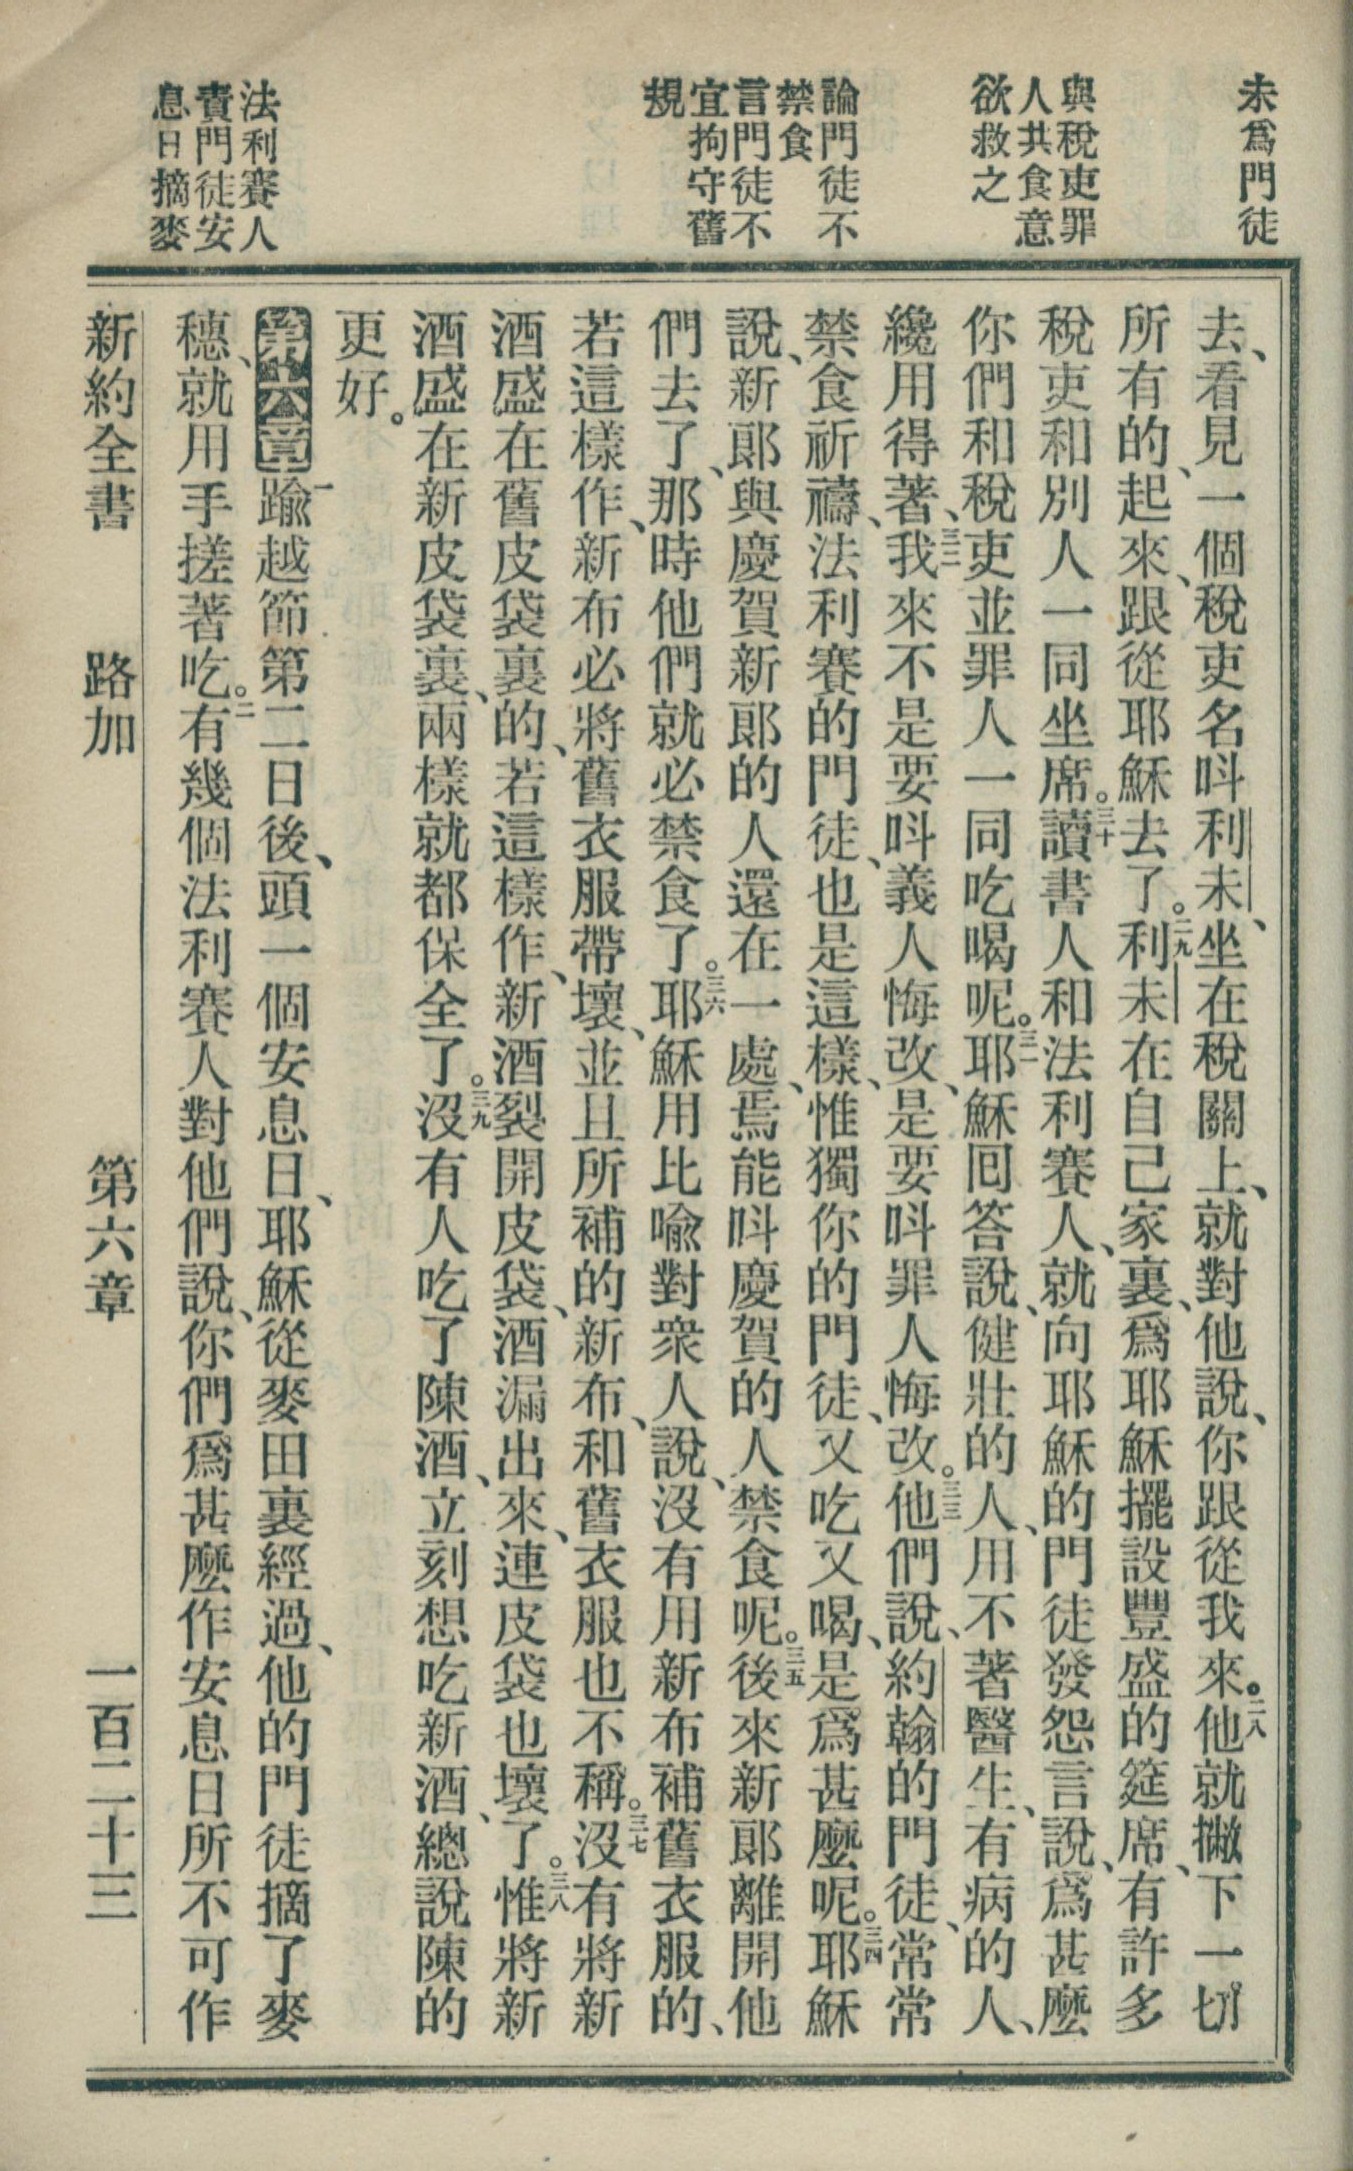 未爲門徒
與稅吏罪
人共食意
欲救之
論門徒不
禁食
言門徒不
宜拘守舊
規
法利賽人
責門徒安
息日摘麥
去、看見一個稅吏名呌利未、坐在稅關上、就對他說、你跟從我來。二八他就撇下一切
所有的、起來、跟從耶穌去了。二九利未在自己家裏、爲耶穌擺設豐盛的筵席、有許多
稅吏和別人一同坐席。三十讀書人和法利賽人、就向耶穌的門徒發怨言說、爲甚麼
你們和稅吏並罪人一同吃喝呢。三一耶穌囘答說、健壯的人、用不著醫生、有病的人、
纔用得著、三二我來不是要呌義人悔改、是要呌罪人悔改。三三他們說、約翰的門徒、常常
禁食祈禱、法利賽的門徒、也是這樣、惟獨你的門徒、又吃又喝、是爲甚麼呢。三四耶穌
說、新郞與慶賀新郞的人還在一處、焉能呌慶賀的人禁食呢。三五後來新郞離開他
們去了、那時他們就必禁食了。三六耶穌用比喩對衆人說、沒有用新布補舊衣服的、
若這樣作、新布必將舊衣服帶壞、並且所補的新布、和舊衣服也不稱。三七沒有將新
酒盛在舊皮袋裏的、若這樣作、新酒裂開皮袋、酒漏出來、連皮袋也壞了。三八惟將新
酒盛在新皮袋裏、兩樣就都保全了。三九沒有人吃了陳酒、立刻想吃新酒、總說陳的
更好。
第六章 一踰越節第二日後、頭一個安息日、耶穌從麥田裏經過、他的門徒摘了麥
穗、就用手搓著吃。二有幾個法利賽人對他們說、你們爲甚麼作安息日所不可作
新約全書 路加 第六章 一百二十三